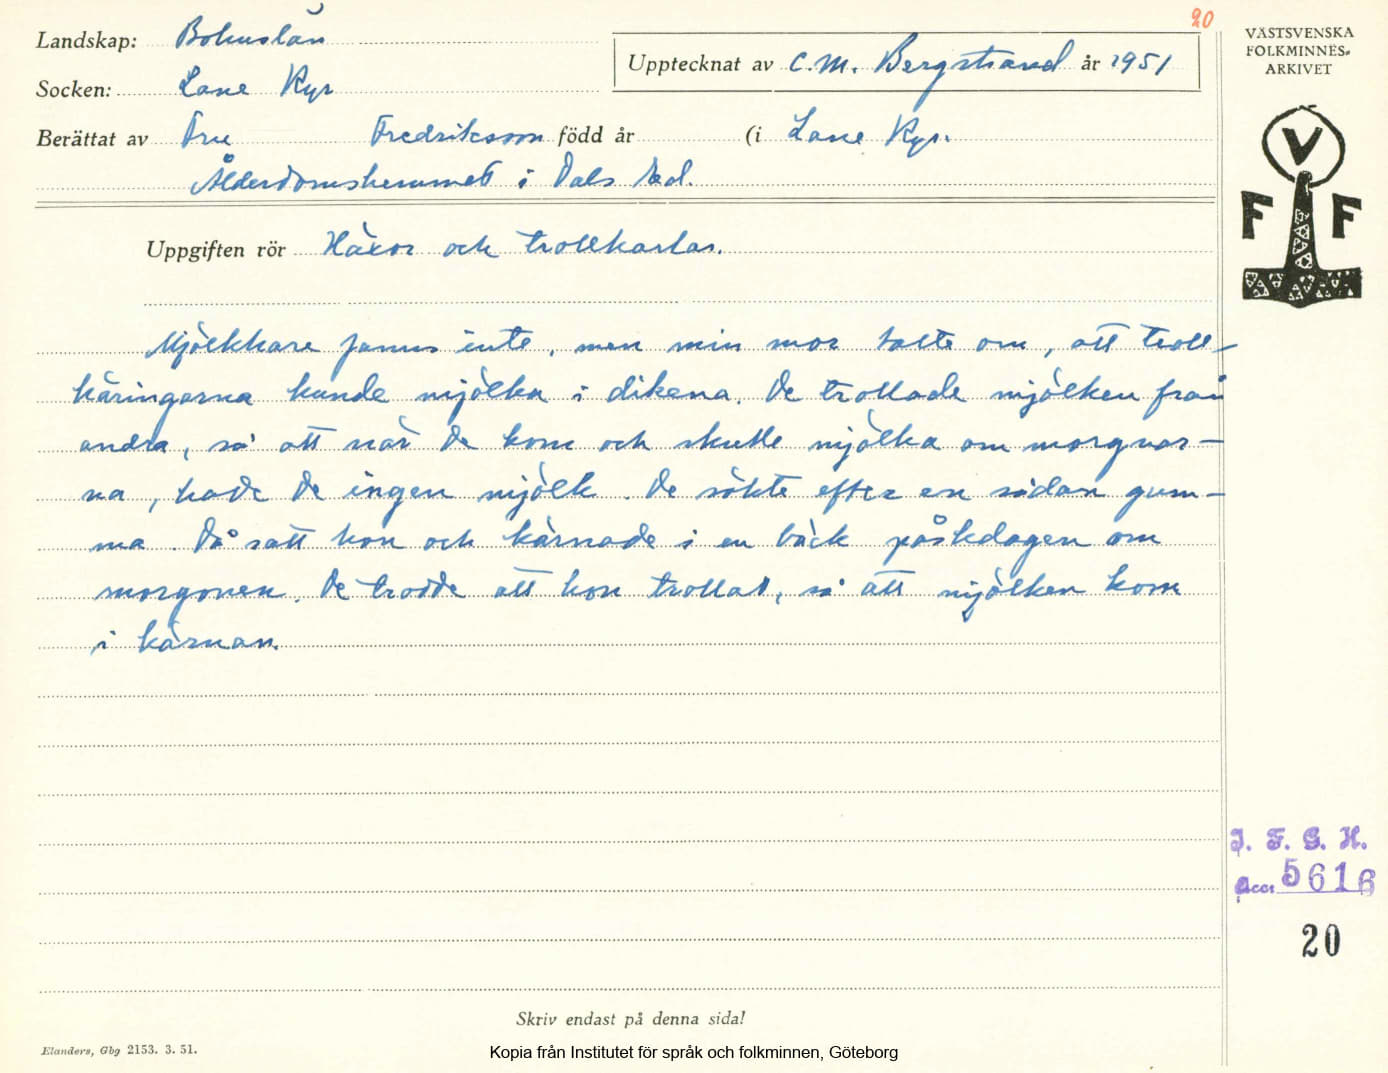 20
Landskap: Bohuslän
Upptecknat av C.M. Bergstrand år 1951
Socken: Lane Ryr
Berättat av Fru Fredriksson född år (i Lane Ryr.
Ålderdomshemmet i Dals Ed.
Uppgiften rör Häxor och trollkarlar.
Mjölkhare fanns inte, men min mor talte om, att troll-
käringarna kunde mjölka i dikena. De trollade mjölken från
andra, så att när de kom och skulle mjölka om morgnar-
na, hade de ingen mjölk. De sökte efter en sådan gum-
ma. Då satt hon och kärnade i en bäck påskdagen om
morgonen. De trodde att hon trollat, så att mjölken kom
i kärnan.
VÄSTSVENSKA
FOLKMINNES-
ARKIVET
V
F F
I. F. G. H.
Acc: 5616
20
Skriv endast på denna sida!
Elanders, Gbg 2153. 3. 51.
Kopia från Institutet för språk och folkminnen, Göteborg